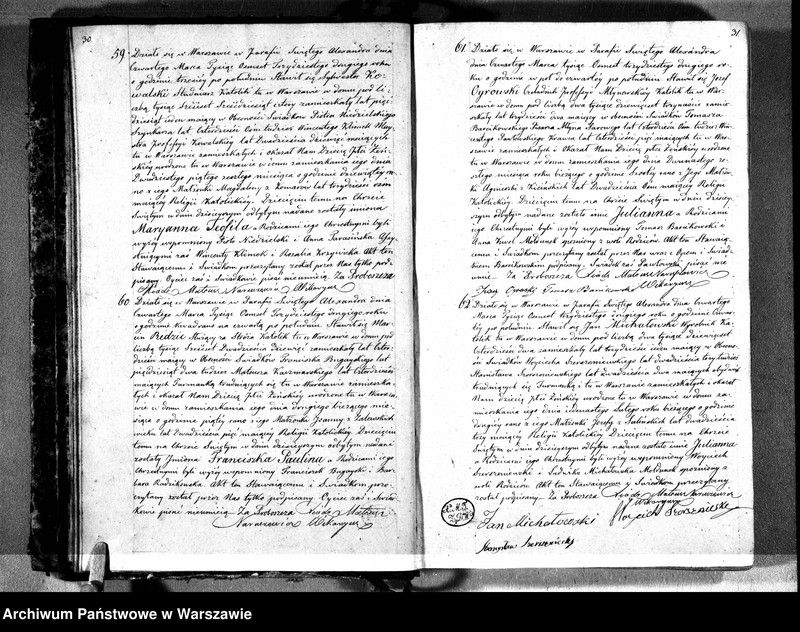 30.
59. Działo się w Warszawie w Parafii Świętego Alexandra dnia
Czwartego Marca Tysiąc Osmset Trzydziestego drugiego roku
o godzinie trzeciej po południu Stawił się Sylwester Ko-
walski Katolik tu w Warszawie w domu pod li-
czbą tysiąc sześćset zamieszkały lat pięć-
dziesiąt ieden maiący w Obecności Świadków Piotra Niedzielskiego
lat Czterdzieści Ośm tudzież Wincentego Klimek
Kowalskiej lat Dwadzieścia dziewięć maiących
tu w Warszawie zamieszkałych i okazał Nam Dziecię Płci Żeń-
skiey urodzone tu w Warszawie w domu zamieszkania iego dnia
Dwudziestego piątego zeszłego miesiąca o godzinie dziewiątey
z iego Małżonki Magdaleny z Komarów lat trzydzieści ośm
maiącey Religii Katolickiey. Dziecięciu temu na Chrzcie
Świętym w dniu dzisieyszym odbytym nadane zostały imiona
Maryanna Teofila a Rodzicami iego Chrzestnymi byli
wyżey wspomniony Piotr Niedzielski i Anna
Wincenty Klimek i Rozalia Krzywicka Akt ten
Stawaiącemu i Świadkom przeczytany został przez Nas tylko pod-
pisany Oyciec zaś i Świadkowie pisać nieumieią. Za Proboszcza
Xiądz Mateusz Naruszewicz Wikaryusz
60. Działo się w Warszawie w Parafii Świętego Alexandra dnia
Czwartego Marca Tysiąc Osmset Trzydziestego drugiego roku
o godzinie kwadrans na czwartą po południu Stawił się Mar-
cin Redzic Katolik tu w Warszawie w domu pod
liczbą tysiąc Dwadzieścia dziewięć zamieszkały lat czter-
dzieści maiący w Obecności Świadków Franciszka Bugayskiego lat
pięćdziesiąt dwa tudzież Mateusza Kaczmarskiego lat Czterdzieści
maiących Furmanką trudniących się tu w Warszawie zamieszka-
łych i okazał Nam Dziecię Płci Żeńskiey urodzone tu w Warsza-
wie w domu zamieszkania iego dnia drugiego bieżącego mie-
siąca o godzinie piątey rano z iego Małżonki Joanny z Zalewskich
lat Dwadzieścia pięć maiącey Religii Katolickiey. Dziecięciu
temu na Chrzcie Świętym w dniu dzisieyszym odbytym nadane
zostały Imiona Franciszka Paulina a Rodzicami iego
Chrzestnymi byli wyżey wspomniony Franciszek Bugayski i Bar-
bara Rudzikowska Akt ten Stawaiącemu i Świadkom prze-
czytany został przez Nas tylko podpisany Oyciec zaś i Świad-
kowie pisać nieumieią Za Proboszcza Xiądz Mateusz
Naruszewicz Wikaryusz
31
61. Działo się w Warszawie w Parafii Świętego Alexandra
dnia Czwartego Marca Tysiąc Osmset Trzydziestego drugiego ro-
ku o godzinie w pół do czwartey po południu Stawił się Józef
Cyrowski Czeladnik Professyi Młynarskiey Katolik tu w War-
szawie w domu pod liczbą dwa tysiące dziewięćset trzynaście zamie-
szkały lat trzydzieści dwa maiący w obecności Świadków Tomasza
Barcikowskiego Pisarza Młyna Parowego lat Czterdzieści Ośm tudzież Win-
centego Pawłowskiego lat Czterdzieści pięć maiących tu w War-
szawie zamieszkałych i okazał Nam Dziecię Płci Żeńskiey urodzone
tu w Warszawie w domu zamieszkania iego dnia Dwunastego ze-
szłego miesiąca roku bieżącego o godzinie szóstey rano z Jego Małżon-
ki Agnieszki z lat Dwadzieścia Ośm maiącey Religii
Katolickiey. Dziecięciu temu na Chrzcie Świętym w dniu dzisiey-
szym odbytym nadane zostało imie Julianna a Rodzicami
iego Chrzestnymi byli wyżey wspomniony Tomasz Barcikowski i
Anna Akt ten Stawaią-
cemu i Świadkom przeczytany został przez Nas wraz z Oycem i Świad-
kiem Barcikowskim podpisany Świadek zaś Pawłowski pisać nie
umie. Za Proboszcza Xiądz Mateusz Naruszewicz
Józef Cyrowski Tomasz Barcikowski Wikaryusz
62. Działo się w Warszawie w Parafii Świętego Alexandra dnia Czwartego
Marca Tysiąc Osmset trzydziestego drugiego roku o godzinie czwar-
tey po południu Stawił się Jan Michałowski Wyrobnik Ka-
tolik tu w Warszawie w domu pod liczbą dwa tysiące Dziewięćset
Czterdzieści dwa zamieszkały lat trzydzieści ieden maiący w Obecno-
ści Świadków Woyciecha lat dwadzieścia trzy tudzież
Stanisława lat Dwadzieścia dwa maiących obydwóch
trudniących się Furmanką i tu w Warszawie zamieszkałych i okazał
Nam dziecię płci Żeńskiey urodzone tu w Warszawie w domu za-
mieszkania iego dnia iedenastego Lutego roku bieżącego o godzinie
drugiey rano z iego Małżonki Józefy z lat dwadzieścia
trzy maiącey Religii Katolickiey. Dziecięciu temu na Chrzcie
Świętym w dniu dzisieyszym odbytym nadane zostało imie Julianna
a Rodzicami iego Chrzestnymi byli wyżey wspomniony Woyciech
i Ludwika Michałowska
woli Rodziców Akt ten Stawaiącemu i Świadkom przeczytany
został podpisany Za Proboszcza Xiądz Mateusz Naruszewicz
Wikaryusz
Jan Michałowski Woyciech
Stanisław
Archiwum Państwowe w Warszawie